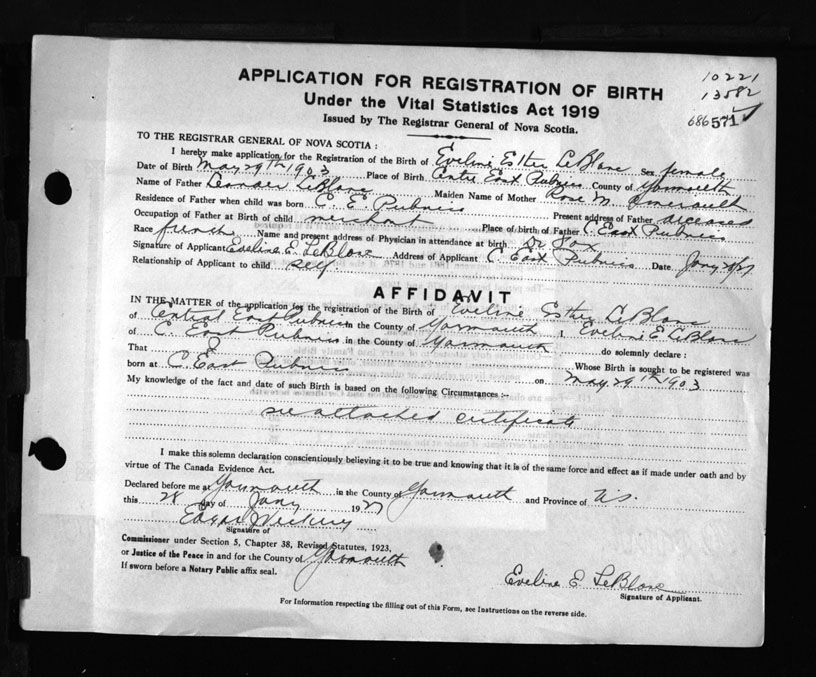 APPLICATION FOR REGISTRATION OF BIRTH
10221
13582
Under the Vital Statistics Act 1919
686571
Issued by The Registrar General of Nova Scotia.
TO THE REGISTRAR GENERAL OF NOVA SCOTIA:
I hereby make application for the Registration of the Birth of Eveline Esther LeBlanc Sex female
Date of Birth May 29th 1903 Place of Birth Centre East Pubnico County of Yarmouth
Name of Father Leander LeBlanc Maiden Name of Mother Rose M. Amerault
Residence of Father when child was born C. E. Pubnico Present address of Father deceased
Occupation of Father at Birth of child merchant Place of birth of Father C. East Pubnico
Race french Name and present address of Physician in attendance at birth Dr Fox
Signature of Applicant Eveline E. LeBlanc Address of Applicant C. East Pubnico Date Jany 28/27
Relationship of Applicant to child self.
AFFIDAVIT
IN THE MATTER of the application for the registration of the Birth of Eveline Esther LeBlanc
of Central East Pubnico in the County of Yarmouth I, Eveline E LeBlanc
of C. East Pubnico in the County of Yarmouth do solemnly declare:
That I Whose Birth is sought to be registered was
born at C. East Pubnico on May 29th 1903
My knowledge of the fact and date of such Birth is based on the following Circumstances:-
see attached certificate
I make this solemn declaration conscientiously believing it to be true and knowing that it is of the same force and effect as if made under oath and by
virtue of The Canada Evidence Act.
Declared before me at Yarmouth in the County of Yarmouth and Province of N.S.
this 28 day of Jany 1927
Signature of
Commissioner under Section 5, Chapter 38, Revised Statutes, 1923,
or Justice of the Peace in and for the County of Yarmouth
If sworn before a Notary Public affix seal.
Eveline E. LeBlanc
Signature of Applicant.
For Information respecting the filling out of this Form, see Instructions on the reverse side.